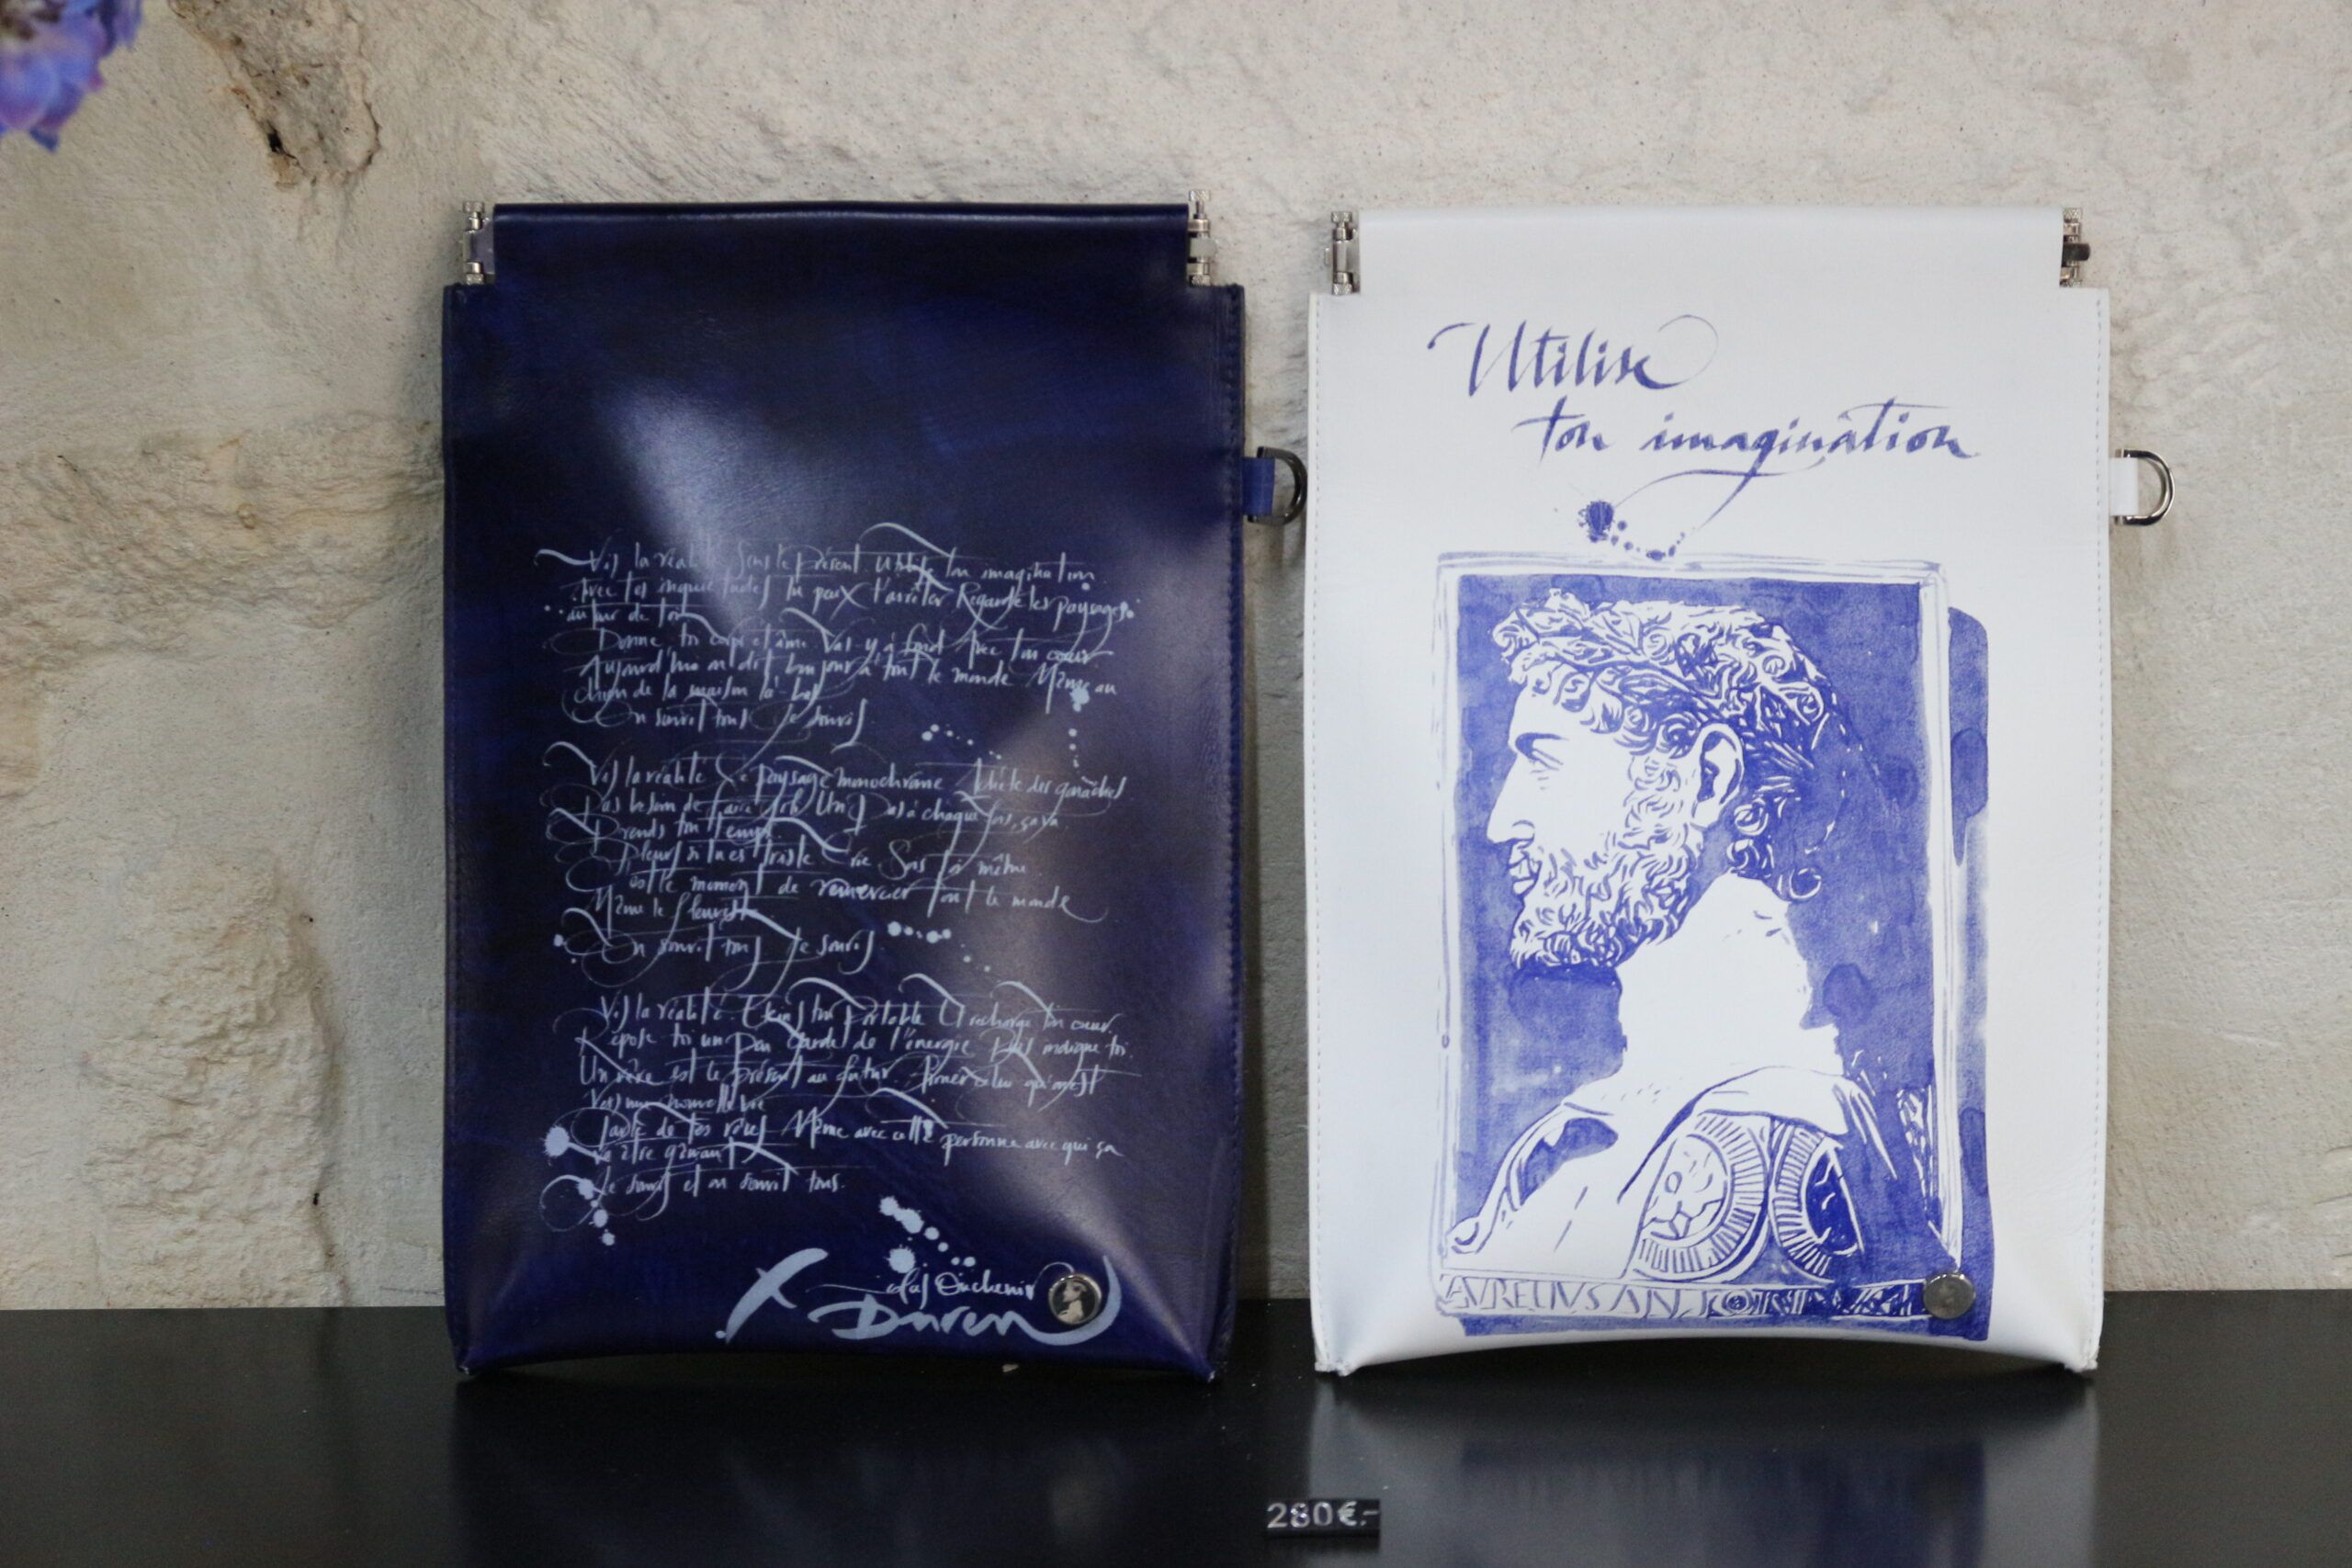 Vis la réalité Sens le présent Utilise ton imagination
Avec tes inquietudes tu peux t'arrêter Regarde les paysages
autour de toi
Donne toi corps et âme Vas-y à fond Avec ton cœur
Aujourd'hui on dit bonjour à tout le monde Même au
chien de la maison là-bas
On sourit tous Je souris
Vis la réalité Le paysage monochrome
Pas besoin de faire Un Pas à chaque fois, ça va
Prends ton temps
Pleurs si tu es triste toi même
C'est le moment de remercier tout le monde
Même le fleuriste
On sourit tous Je souris
Vis la réalité. portable Il recharge ton cœur
Repose toi un peu Garde de l'énergie
Un rêve est le présent au futur
Vers une nouvelle vie
Parle de tes rêves Même avec cette personne avec qui ça
va être gênant
Je souris et on sourit tous.
Duren
Utilise
ton imagination
AVRELIVS
280€.-